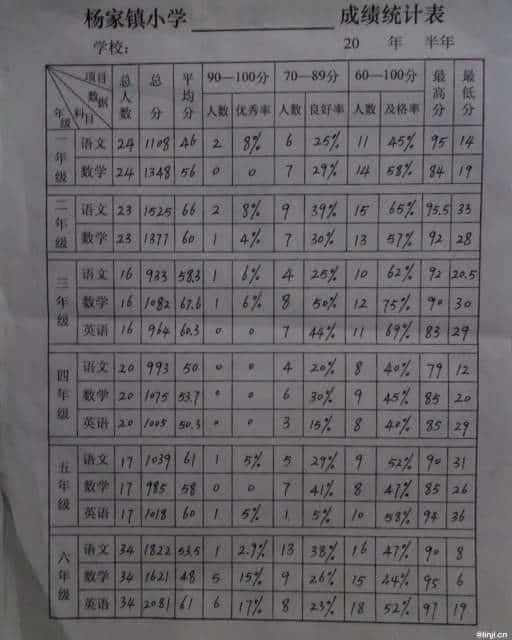 杨家镇小学 成绩统计表
学校: 20 年 半年
项目 数据 科目 年级 总人数 总分 平均分 90—100分 70—89分 60—100分 最高分 最低分
人数 优秀率 人数 良好率 人数 及格率
一年级 语文 24 1108 46 2 8% 6 25% 11 45% 95 14
数学 24 1348 56 0 0 7 29% 14 58% 84 19
二年级 语文 23 1525 66 2 8% 9 39% 15 65% 95.5 33
数学 23 1377 60 1 4% 7 30% 13 57% 92 28
三年级 语文 16 933 58.3 1 6% 4 25% 10 62% 92 20.5
数学 16 1082 67.6 1 6% 8 50% 12 75% 90 30
英语 16 964 60.3 0 0 7 44% 11 69% 83 29
四年级 语文 20 993 50 0 0 4 20% 8 40% 79 12
数学 20 1075 53.7 0 0 6 30% 9 45% 85 20
英语 20 1005 50.3 0 0 3 15% 8 40% 85 29
五年级 语文 17 1039 61 1 5% 5 29% 9 52% 90 31
数学 17 985 58 0 0 7 41% 8 47% 85 26
英语 17 1018 60 1 5% 1 5% 10 58% 94 36
六年级 语文 34 1822 53.5 1 2.9% 13 38% 16 47% 90 8
数学 34 1621 48 5 15% 9 26% 15 44% 95 6
英语 34 2081 61 6 17% 8 23% 18 52% 97 19
@linji.cn